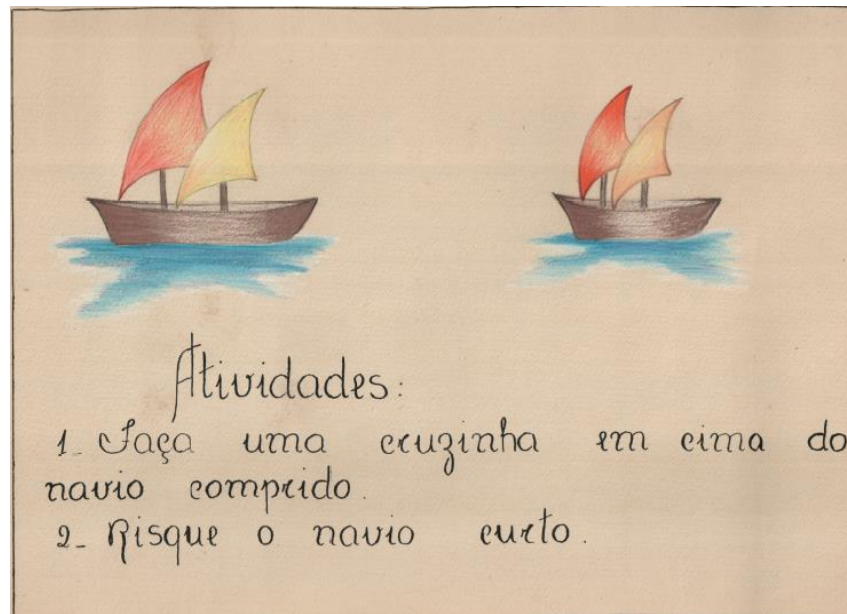 Atividades:
1_ Faça uma cruzinha em cima do
navio comprido.
2_ Risque o navio curto.